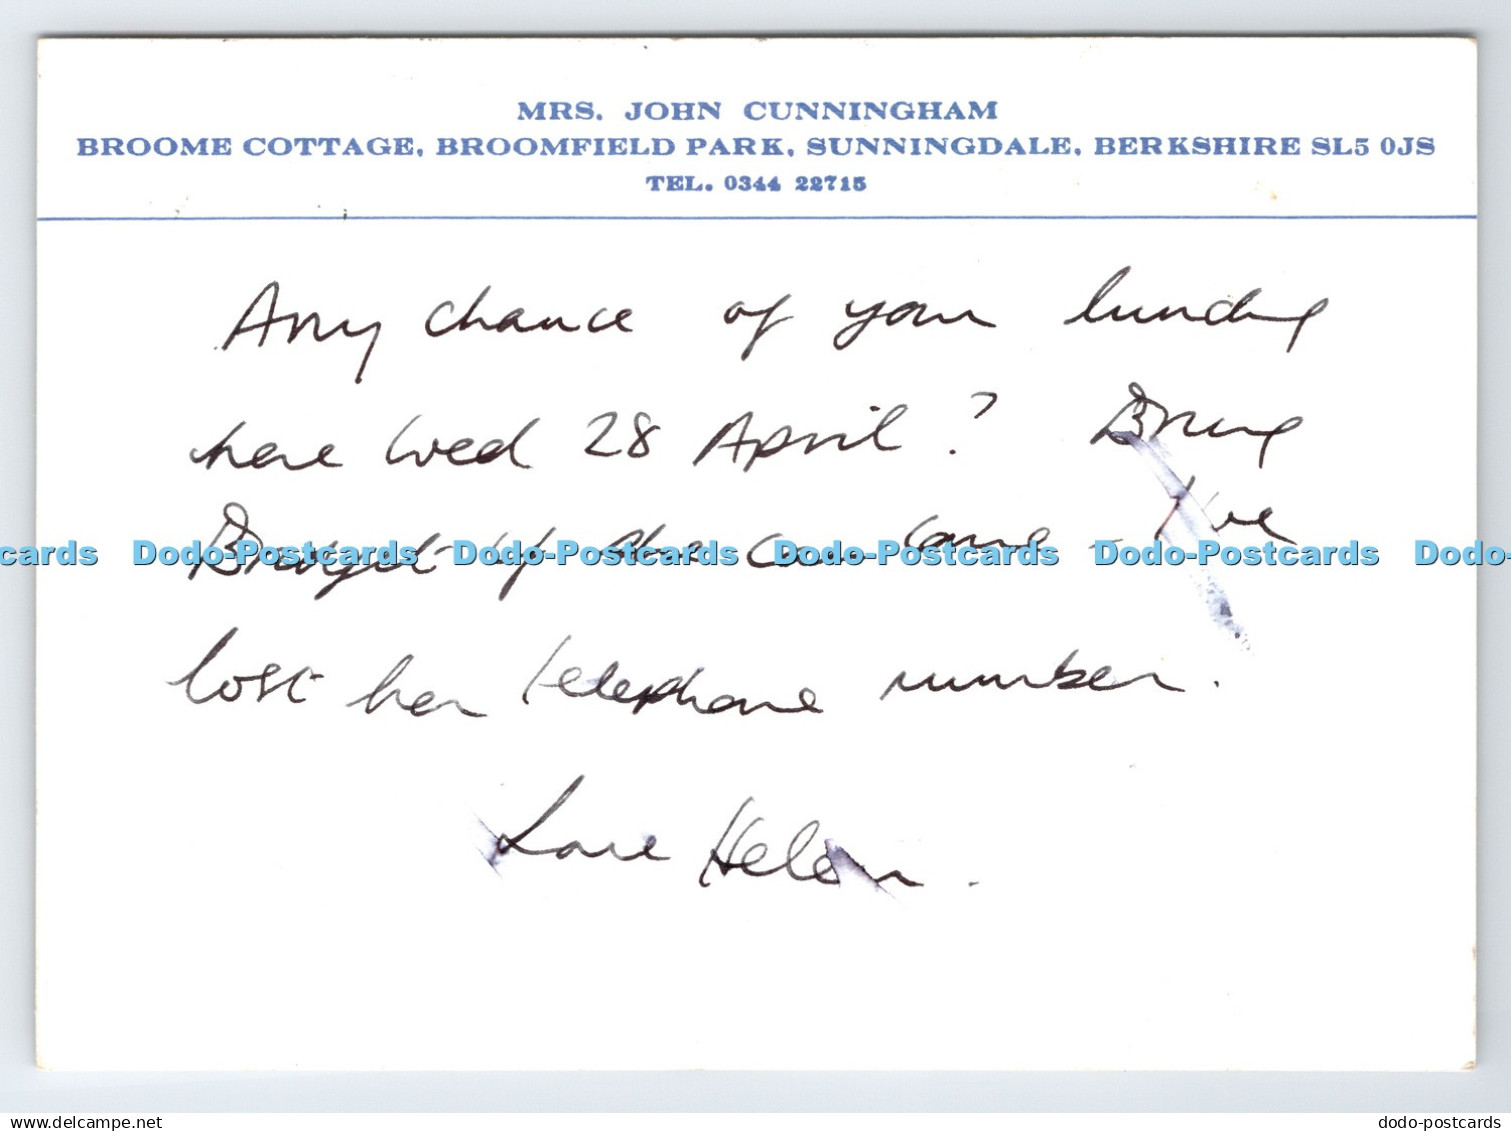 MRS. JOHN CUNNINGHAM
BROOME COTTAGE, BROOMFIELD PARK, SUNNINGDALE, BERKSHIRE SL5 0JS
TEL. 0344 22715
Any chance of your lunching
here Wed 28 April? Bring
if she can come - I've
lost her telephone number.
Love Helen.
cards Dodo-Postcards Dodo-Postcards Dodo-Postcards Dodo-Postcards Dodo-
delcampe.net
dodo-postcards